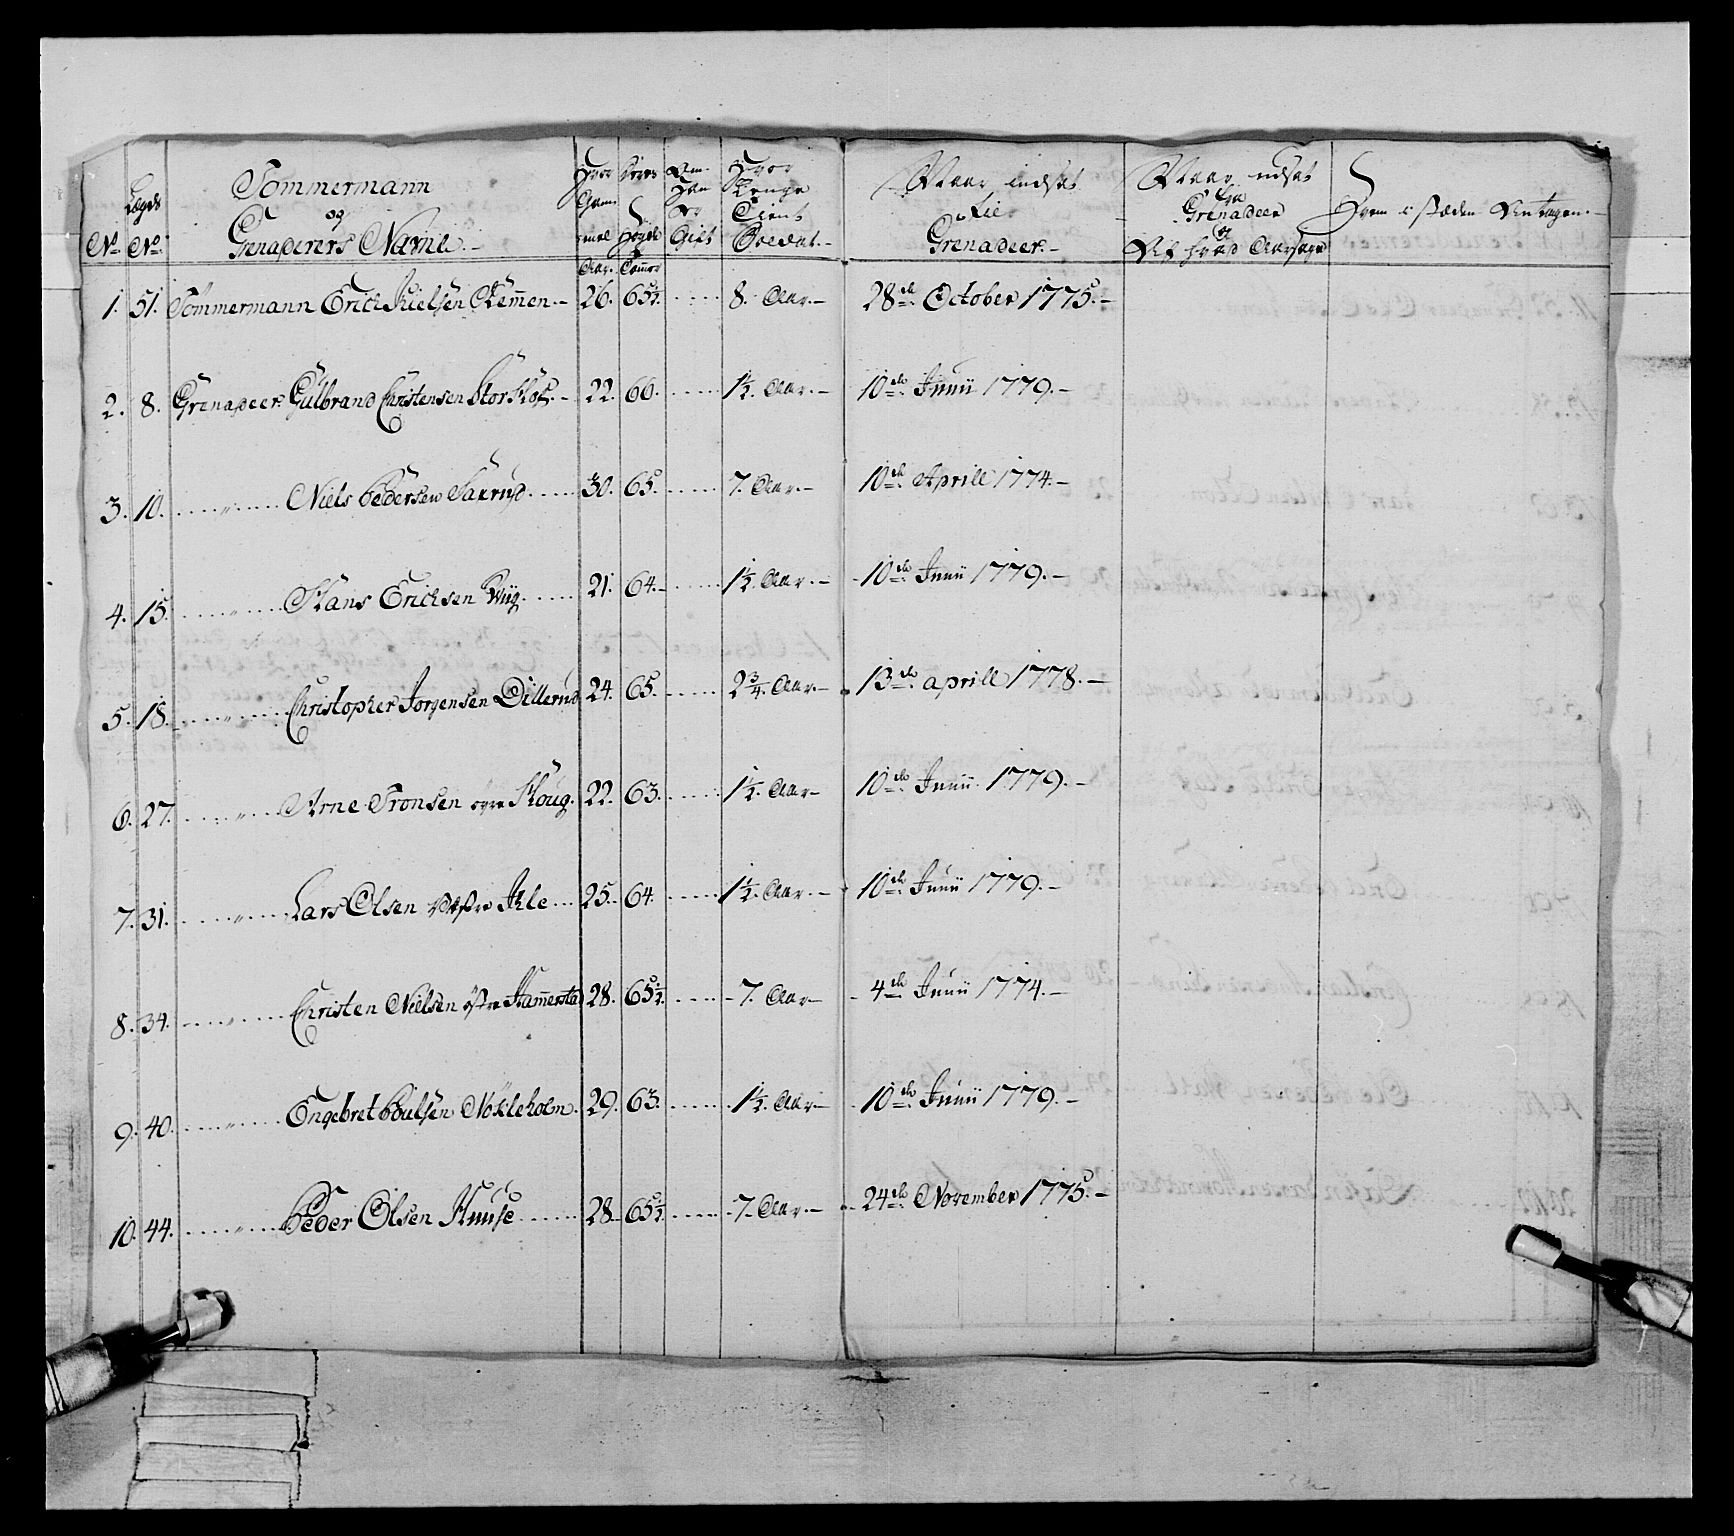 No.
Lægds No.
Tømmermann
og
Grenaderers Nafne.
Hvor Gammel
Aar.
Deres Høyde
Tommer
Om Han Er Gift
Hvor Længe Tient Soldat.
Naar indsat
til
Grenadeer.
Naar udsat
fra
Grenadeer
og
Af hvad Aarsage
Hvem i stæden Antagen.
1. 51. Tømmermann Erich Nielsen Klemmen. 26. 65½. 8. Aar. 28de October 1775.
2. 8. Grenadeer Gulbrand Christensen Stor Kós. 22. 60. 1½. Aar. 10de Junii 1779.
3. 10. " Niels Pedersen Saxrud 30. 65. 7. Aar. 10de Aprill 1774.
4. 15. " Hans Erichsen Wiig. 21. 64. 1½. Aar. 10de Junii 1779.
5. 18. " Christopher Jorgensen Dillerud 24. 65. 2¾. Aar. 13de aprill 1778.
6. 27. " Arne Tronsen øvre Houg. 22. 63. 1½. Aar. 10de Junii 1779.
7. 31. " Lars Olsen Østre Ihle 25. 64. 1½. Aar. 10de Junii 1779.
8. 34. " Christen Nielsen østre Hammersta 28. 65½. 7. Aar. 4de Junii 1774.
9. 40. " Engebret Poulsen Nøkleholm. 29. 63. 1½. Aar. 10de Junii 1779.
10. 44. " Peder Olsen Huuse 28. 65½. 7. Aar. 24de November 1775.